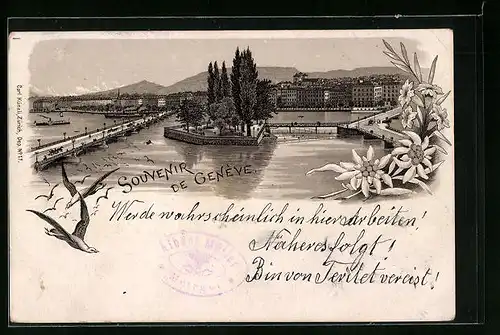 Carl Künzli, Zürich, Dep. No 17.
SOUVENIR
DE GENÈVE.
Werde wahrscheinlich in hiersarbeiten!
Näheres folgt!
Bin von Teritet vereist!